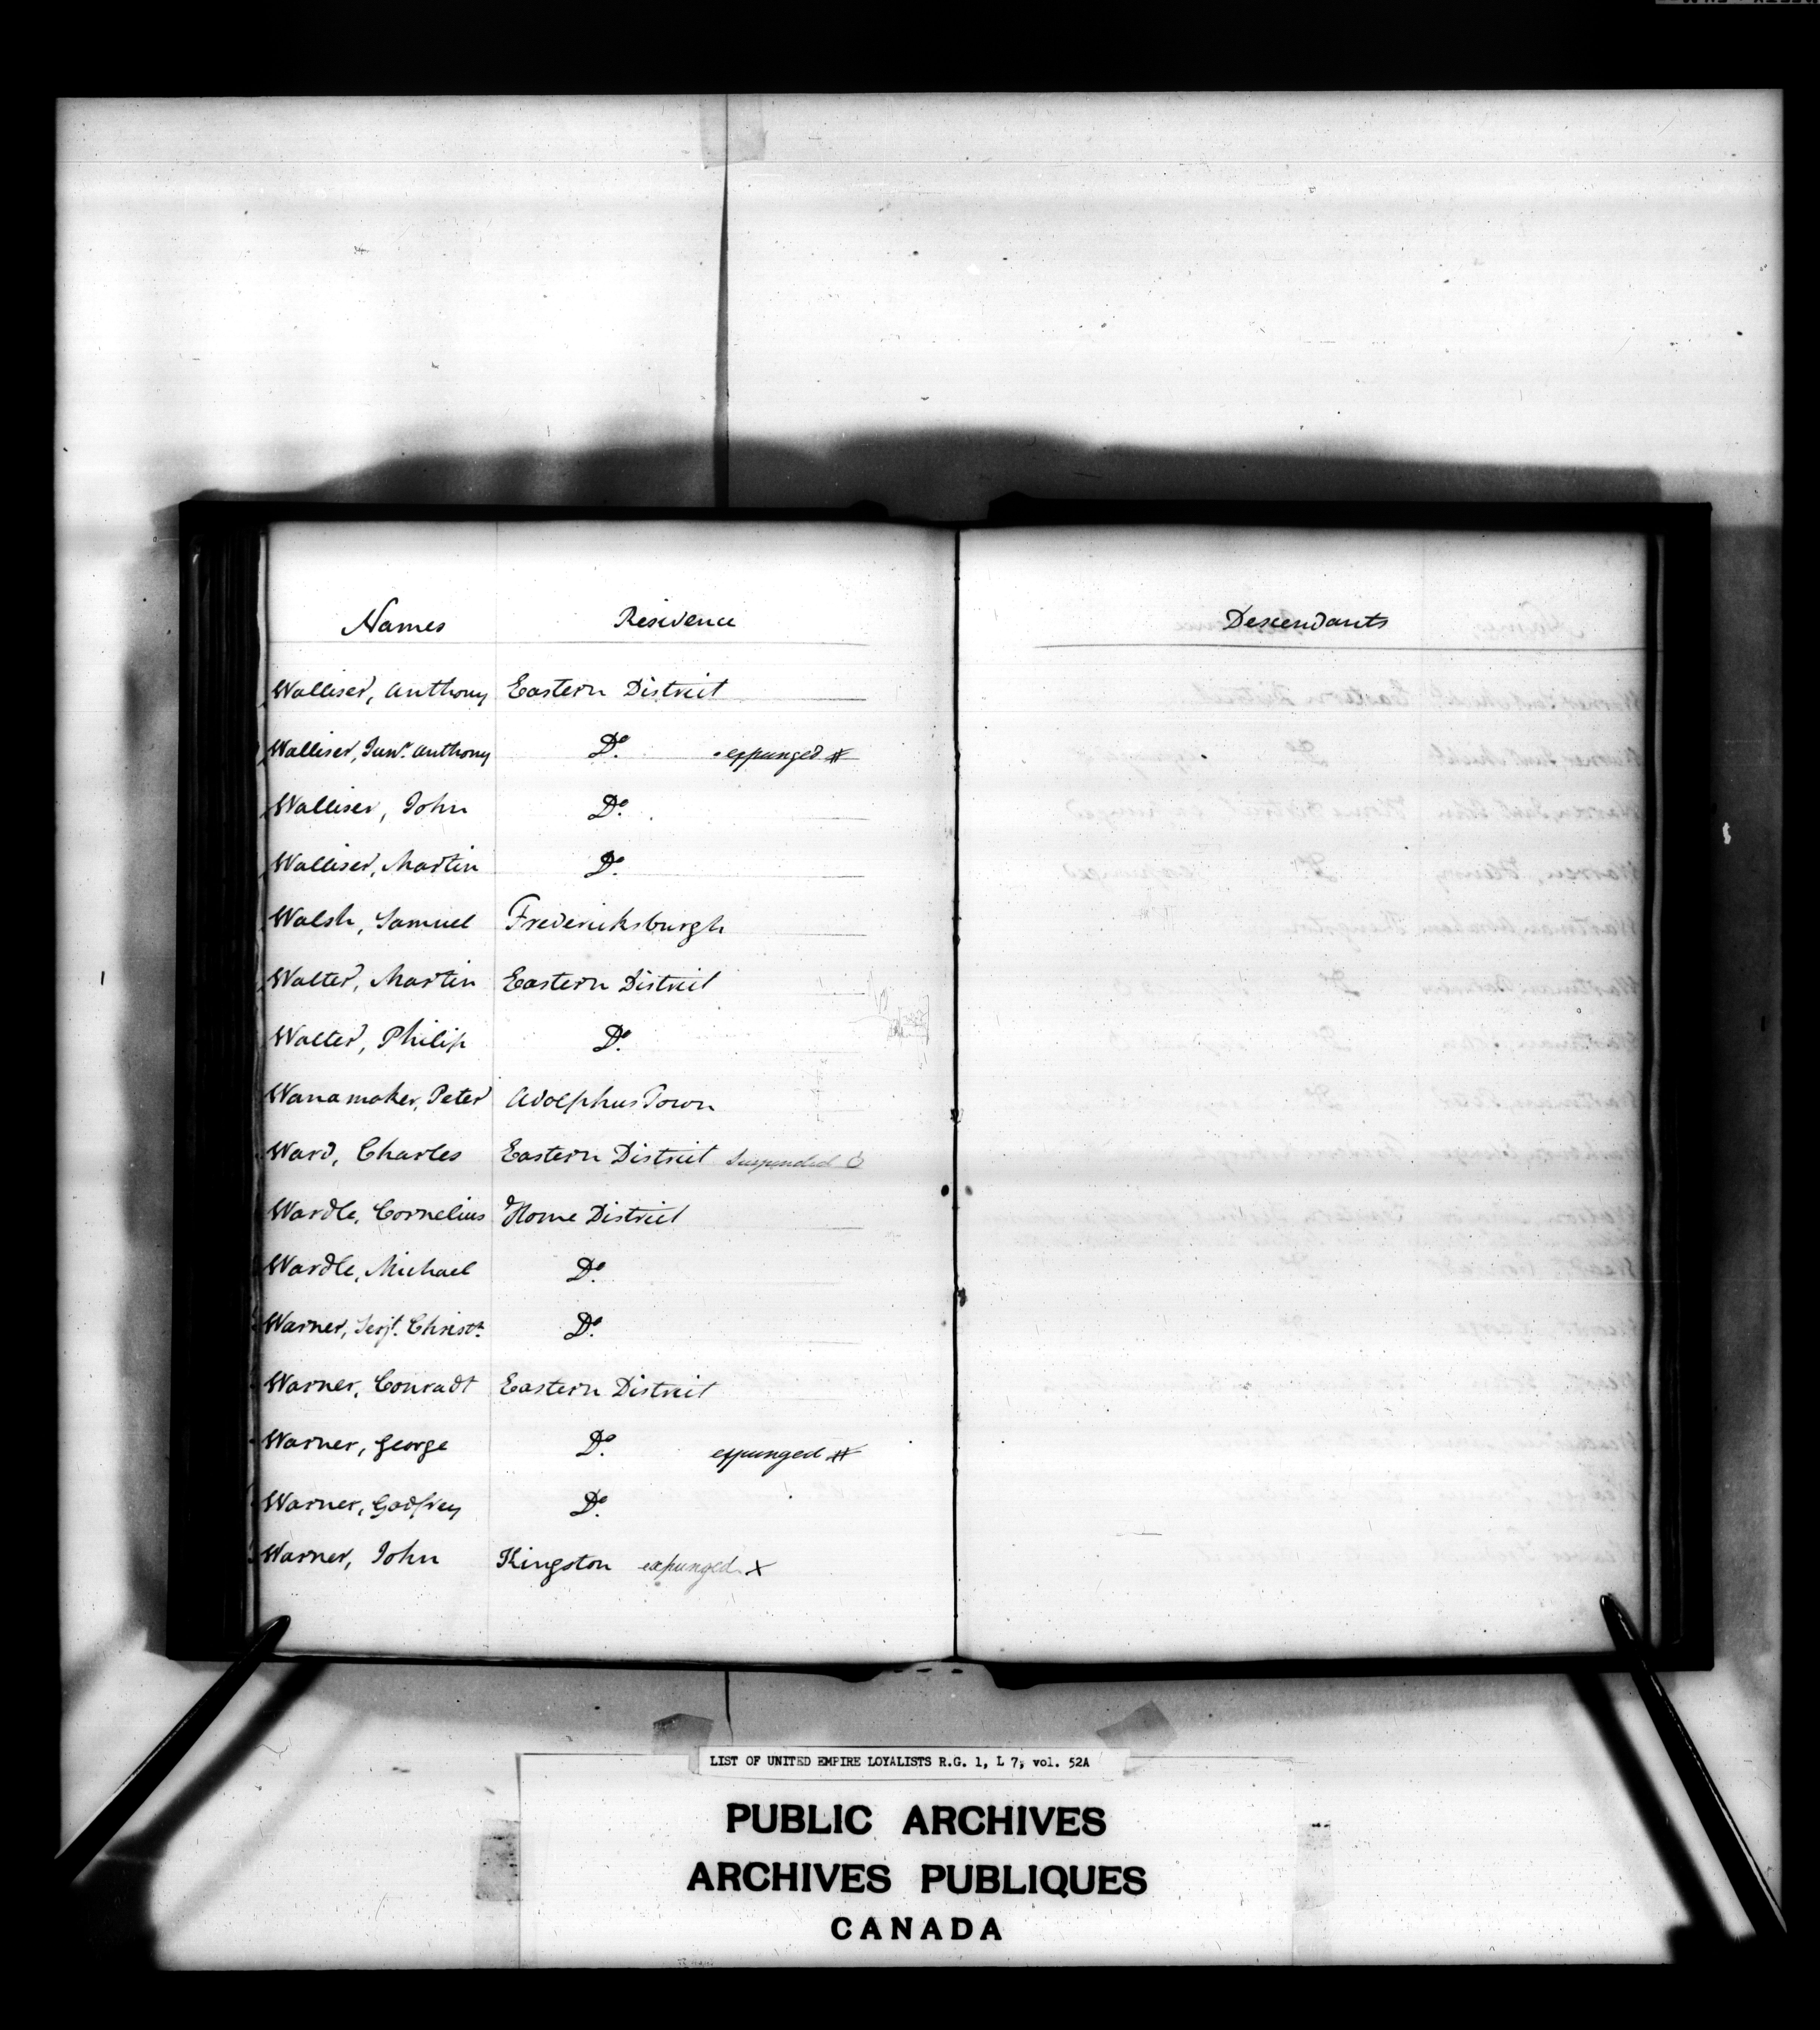 Names Residence Descendants
Walliser, Anthony Eastern District
Walliser, Junr. Anthony Do. expunged #
Walliser, John Do.
Walliser, Martin Do.
Walsh, Samuel Fredericksburgh
Walter, Martin Eastern District
Walter, Philip Do.
Wanamaker, Peter Adolphus Town
Ward, Charles Eastern District Suspended
Wardle, Cornelius Home District
Wardle, Michael Do.
Warner, Serjt. Christr. Do.
Warner, Conradt Eastern District
Warner, George Do. expunged #
Warner, Godfrey Do.
Warner, John Kingston expunged X
LIST OF UNITED EMPIRE LOYALISTS R.G. 1, L 7, vol. 52A
PUBLIC ARCHIVES
ARCHIVES PUBLIQUES
CANADA